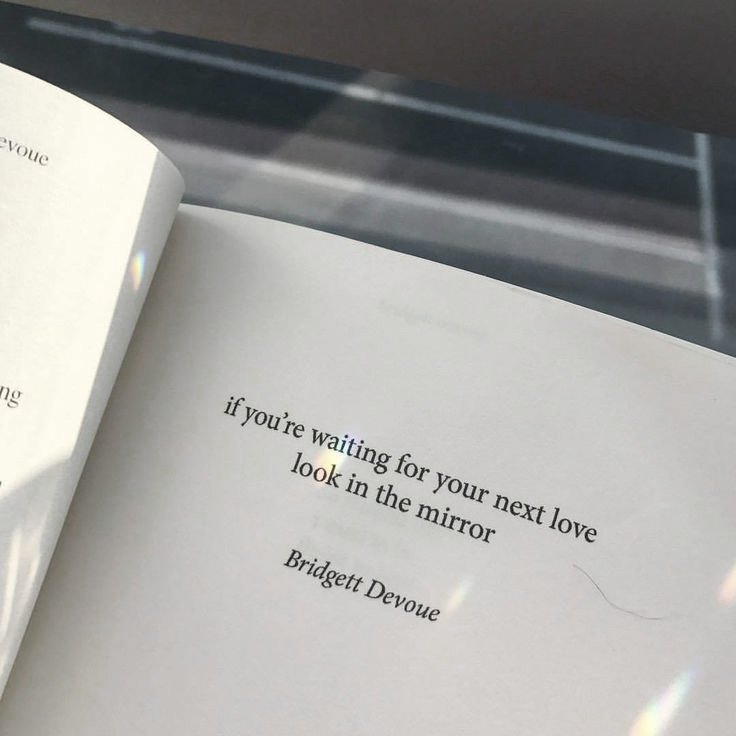 evoue
ng
if you're waiting for your next love
look in the mirror
Bridgett Devoue